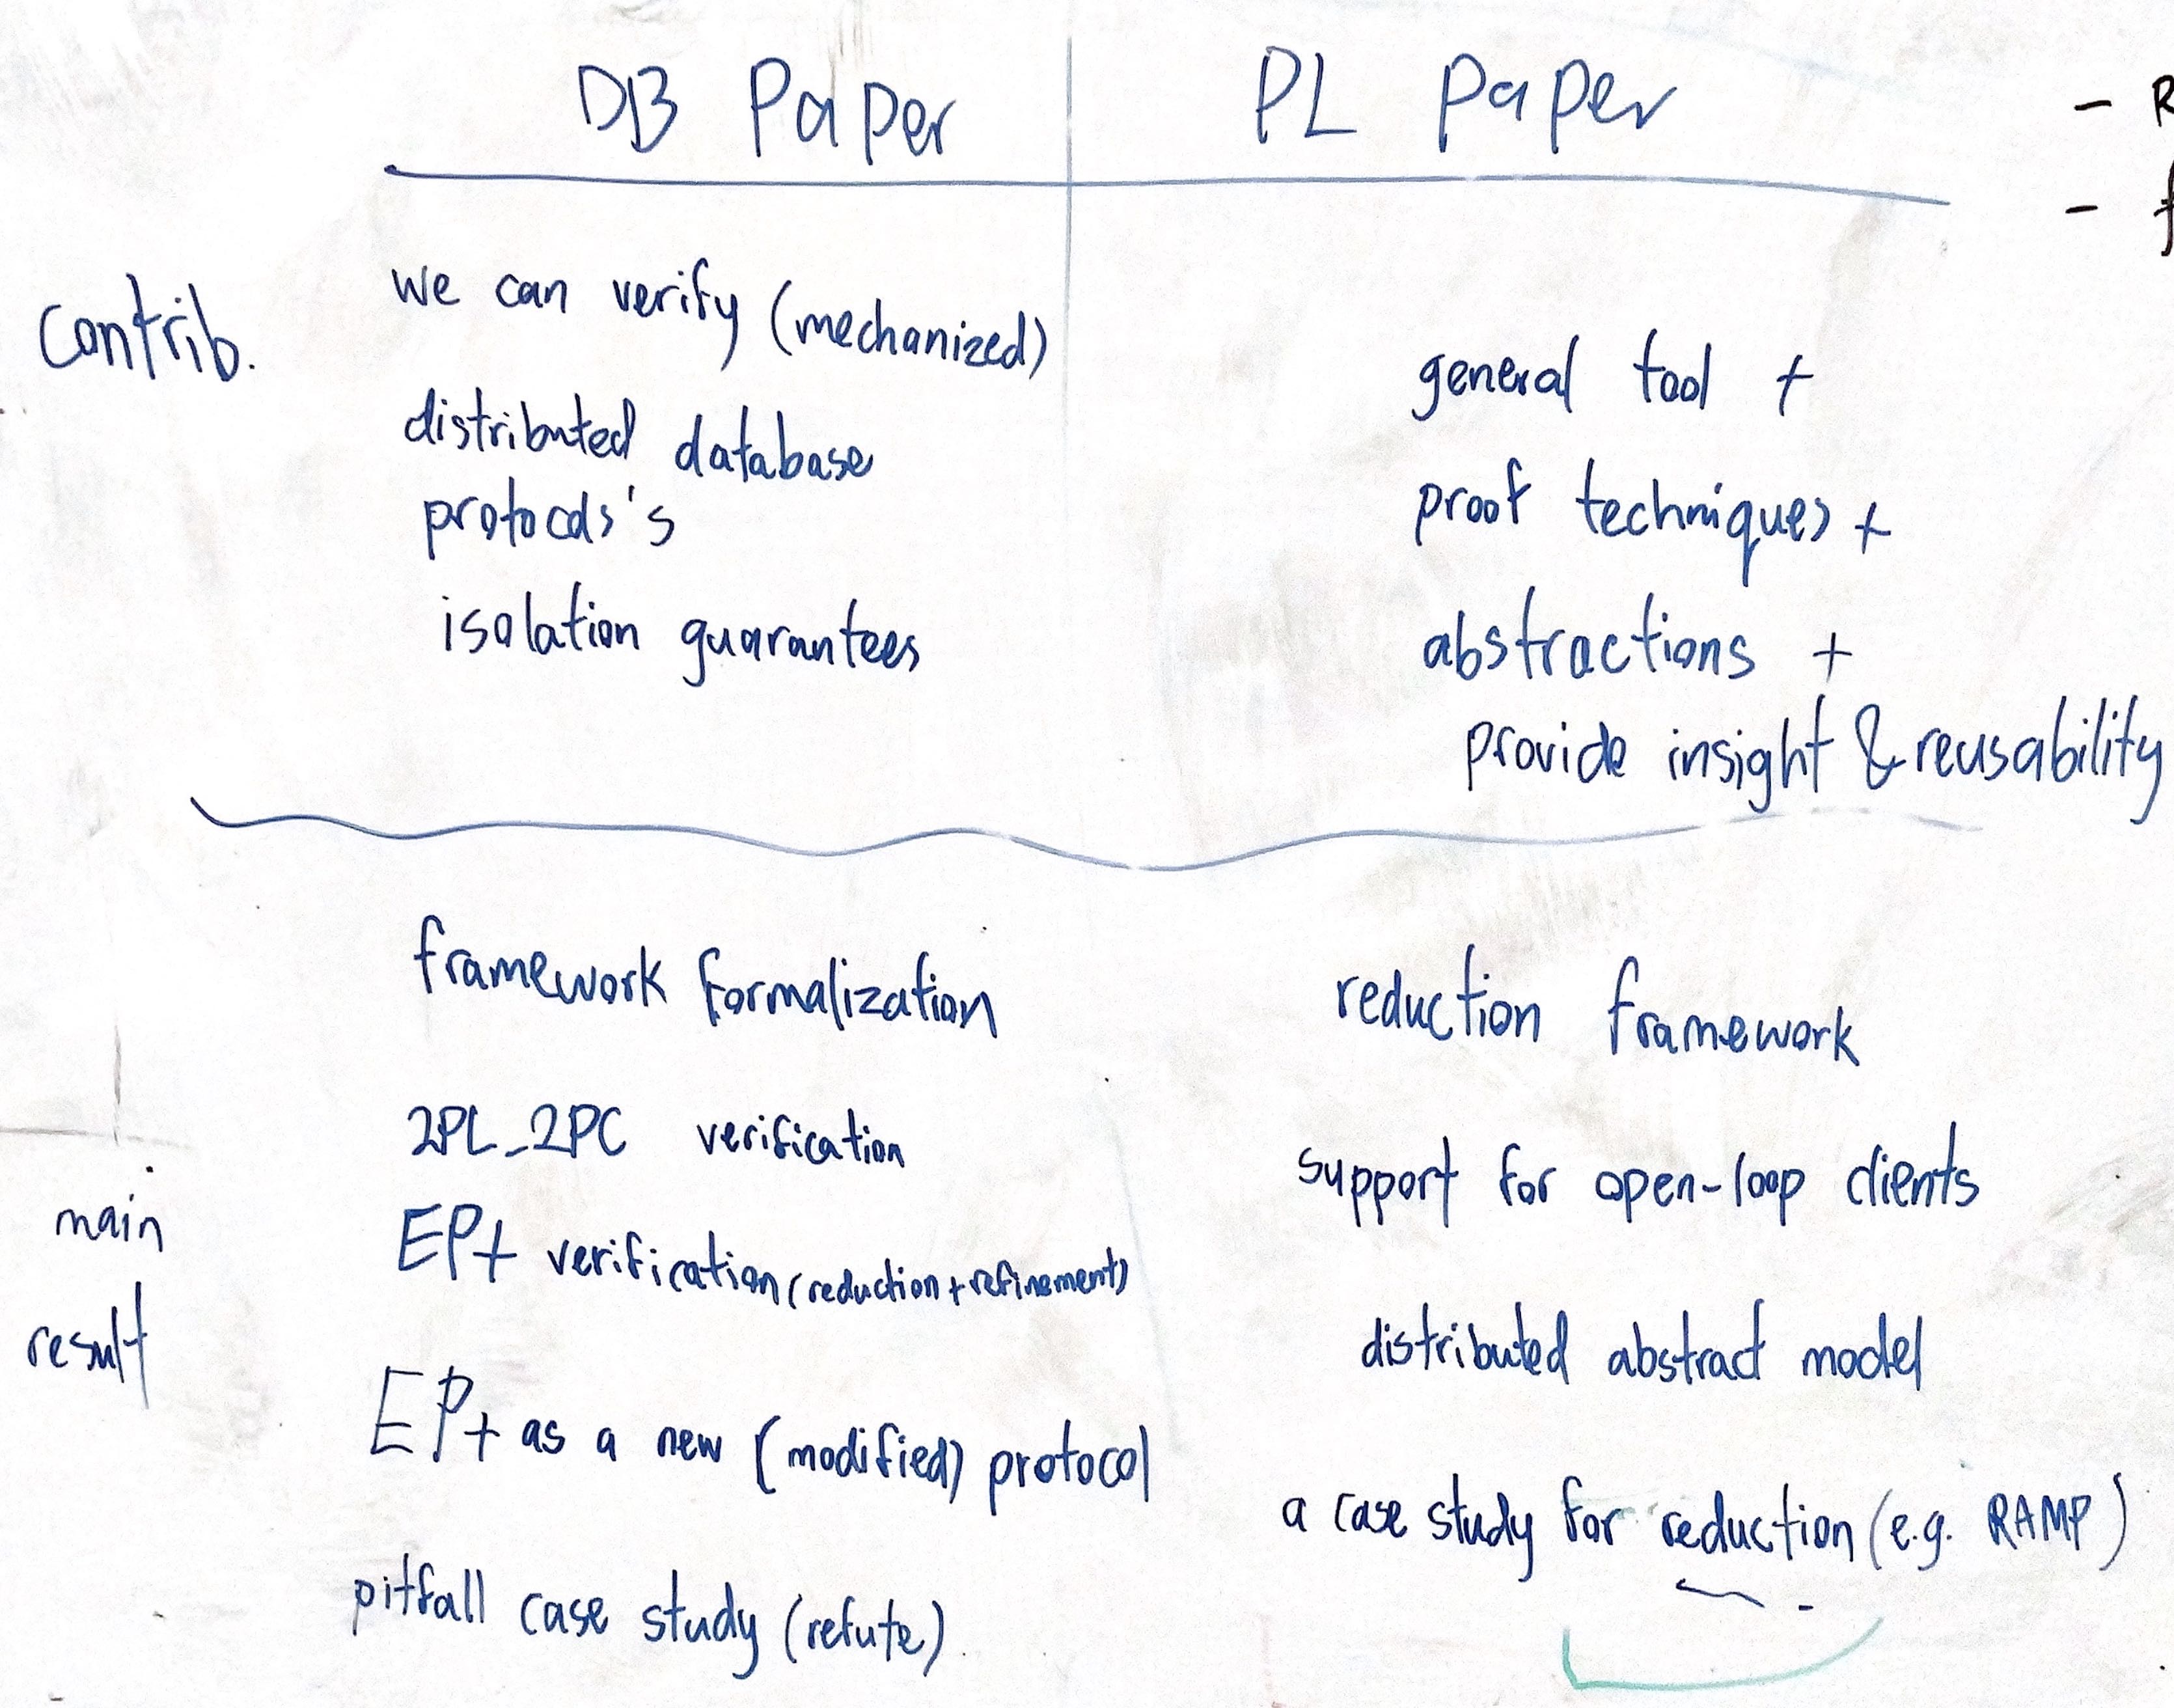 DB Paper
PL Paper
Contrib.
we can verify (mechanized)
distributed database
protocols's
isolation guarantees
general tool +
proof techniques +
abstractions +
provide insight & reusability
main
result
framework formalization
2PL_2PC verification
EP+ verification (reduction + refinement)
EP+ as a new (modified) protocol
pitfall case study (refute)
reduction framework
support for open-loop clients
distributed abstract model
a case study for reduction (e.g. RAMP)